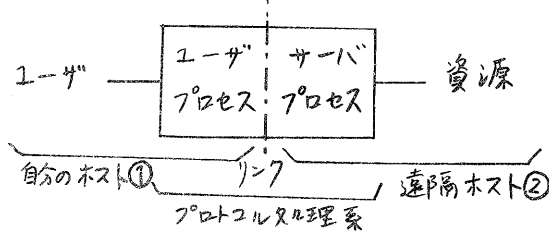 ユーザ
ユーザ
プロセス
サーバ
プロセス
資源
自分のホスト①
リンク
遠隔ホスト②
プロトコル処理系